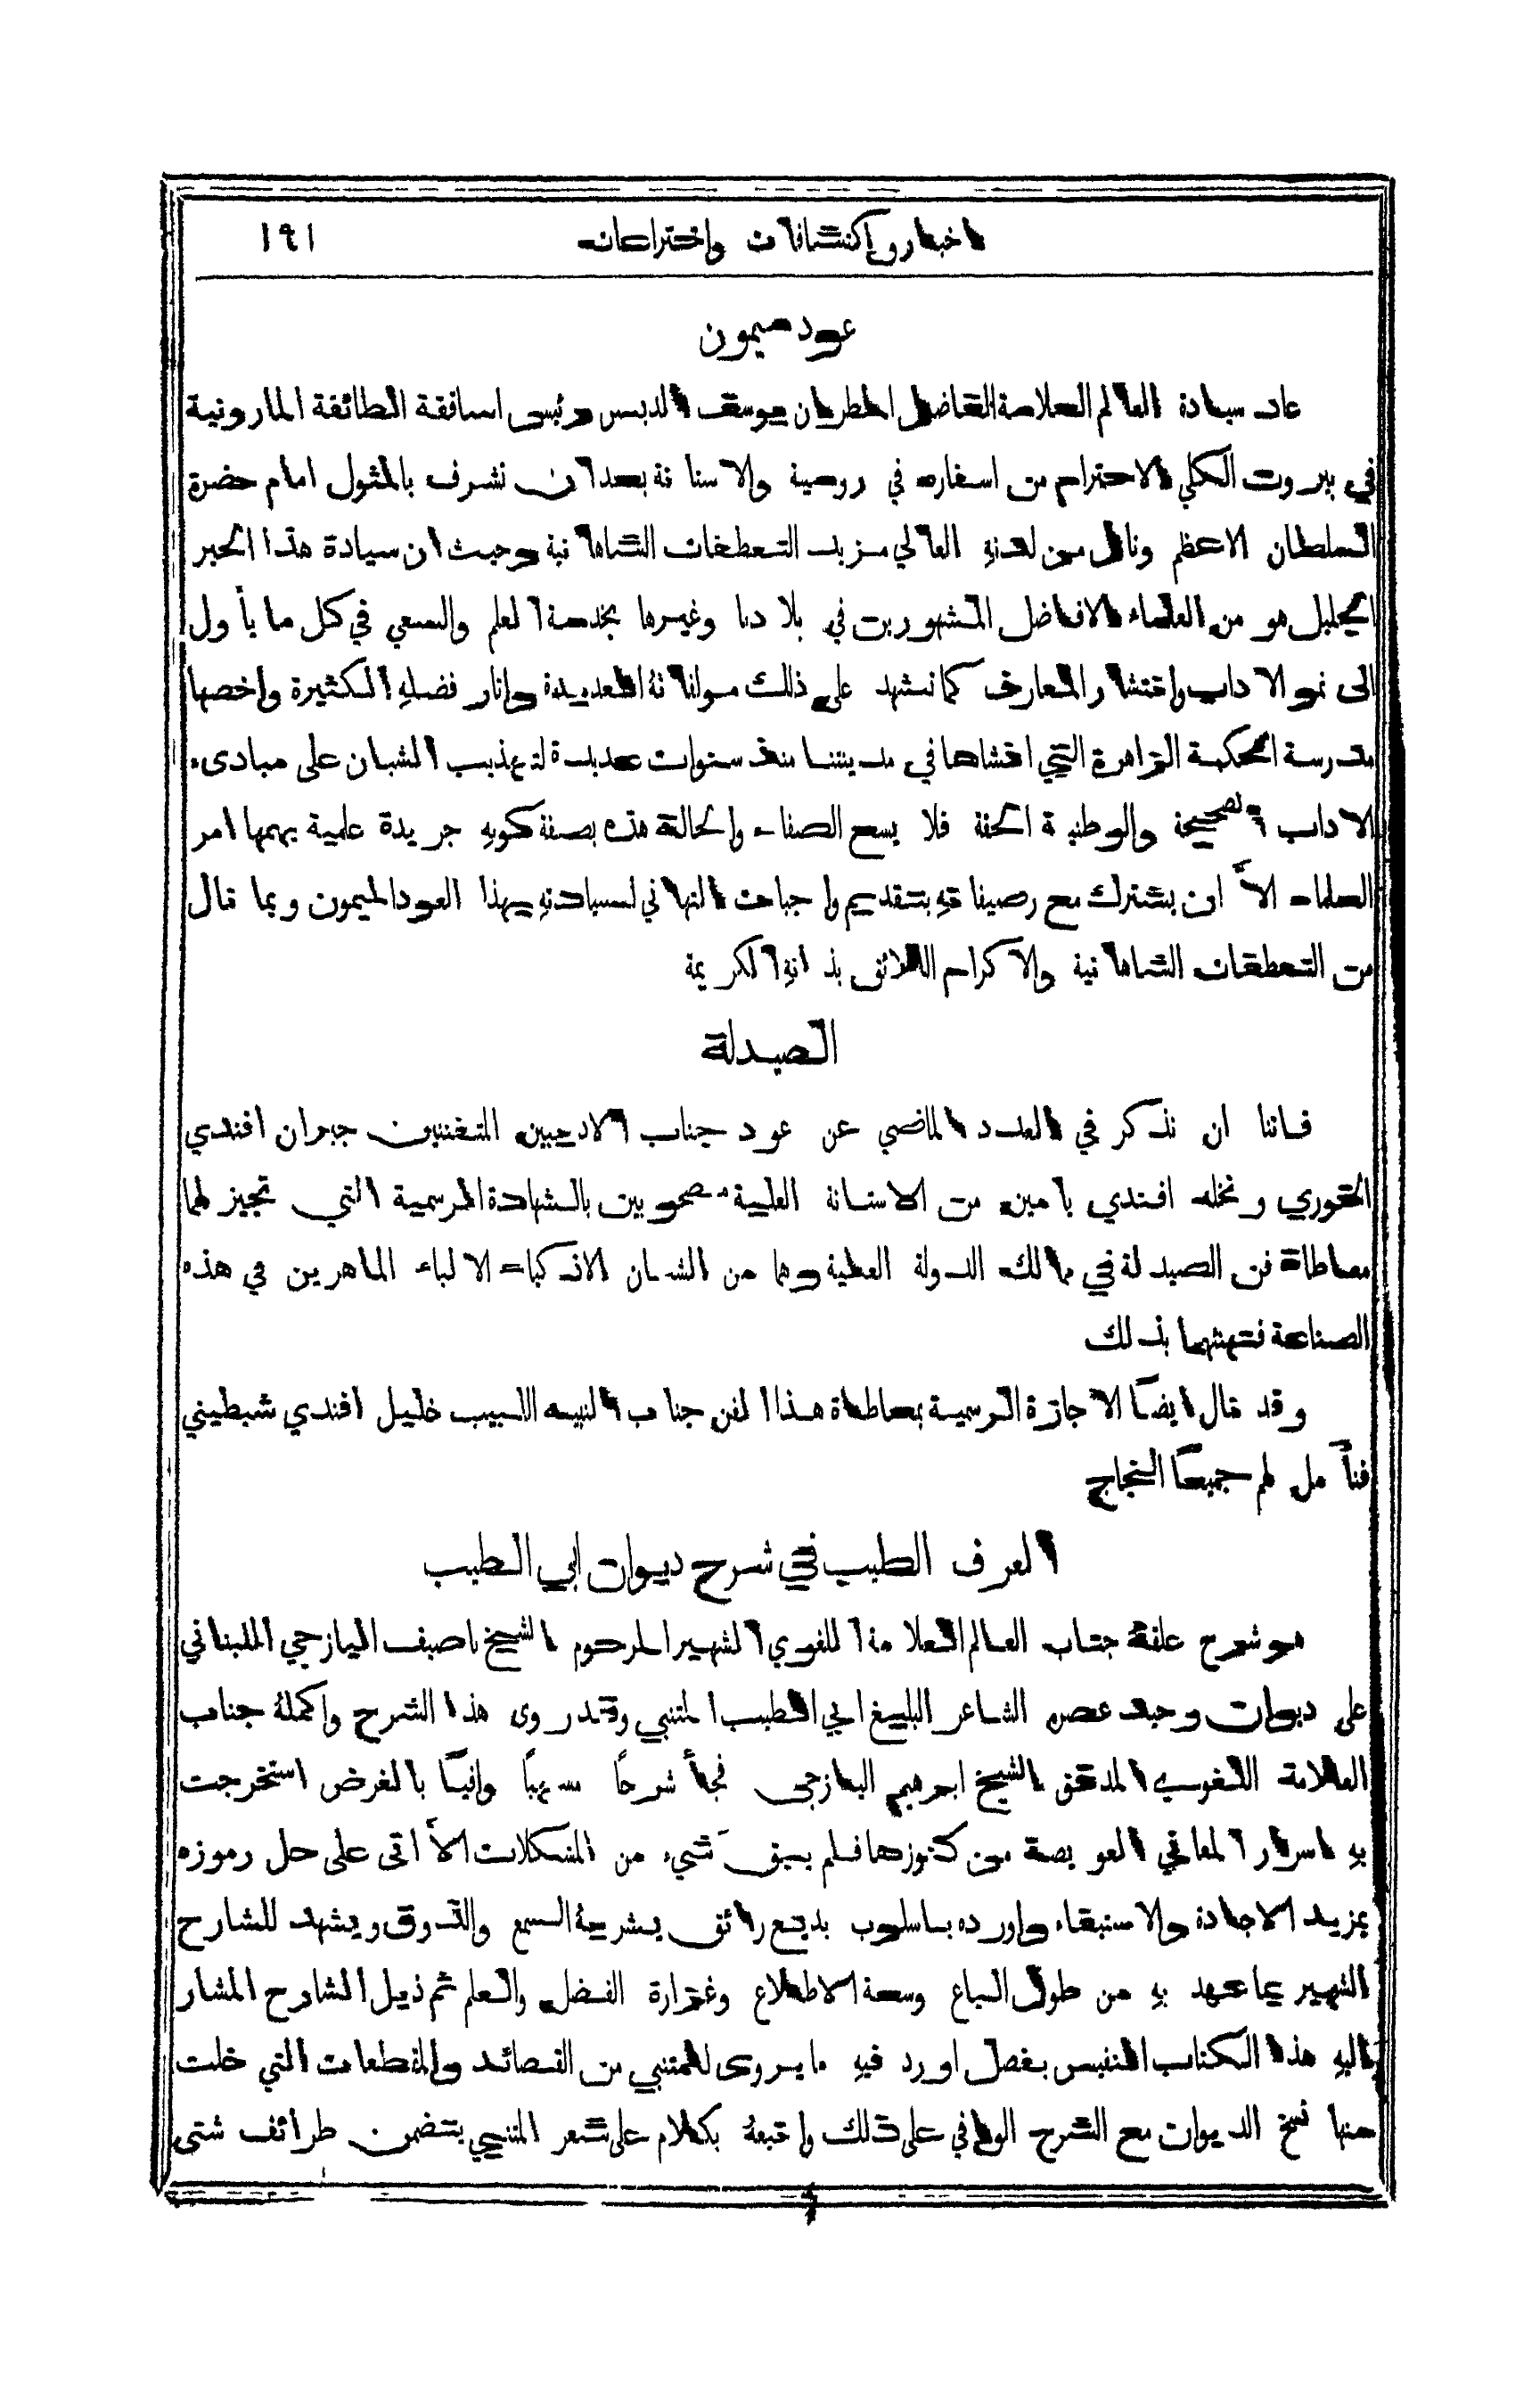 اخبار واكتشافات واختراعات ١٩١
عود ميمون
عاد سيادة العالم العلامة الفاضل المطران يوسف الدبس رئيس اساقفة الطائفة المارونية
في بيروت الكلي الاحترام من اسفاره في رومية والاستانة بعد ان تشرف بالمثول امام حضرة
السلطان الاعظم ونال من لدنهِ العالي مزيد التعطفات الشاهانية وحيث ان سيادة هذا الحبر
الجليل هو من العلماء الافاضل المشهورين في بلادنا وغيرها بخدمة العلم والسعي في كل ما يأول
الى نمو الاداب وانتشار المعارف كما تشهد على ذلك مولفاتهُ العديدة واثار فضلهِ الكثيرة واخصها
مدرسة الحكمة الزاهرة التي انشاها في مدينتنا منذ سنوات عديدة لتهذيب الشبان على مبادىء
الاداب الصحيحة والوطنية الحقة فلا يسع الصفاء والحالة هذه بصفة كونهِ جريدة علمية يهمها امر
العلماء الاَّ ان يشترك مع رصيفاتهِ بتقديم واجبات التهاني لسيادتهِ بهذا العود الميمون وبما نال
من التعطفات الشاهانية والاكرام اللائق بذاتهِ الكريمة
الصيدلة
فاتنا ان نذكر في العدد الماضي عن عود جناب الاديبين المتفننين جبران افندي
الخوري ونخله افندي يامين من الاستانة العلية مصحوبين بالشهادة الرسمية التي تجيز لهما
معاطاة فن الصيدلة في ممالك الدولة العلية وهما من الشبان الاذكياء الالباء الماهرين في هذه
الصناعة فنهنئهما بذلك
وقد نال ايضًا الاجازة الرسمية بمعاطاة هذا الفن جناب النبيه اللبيب خليل افندي شبطيني
فنأمل لهم جميعًا النجاح
العرف الطيب في شرح ديوان ابي الطيب
هو شرح علقهُ جناب العالم العلامة اللغوي الشهير المرحوم الشيخ ناصيف اليازجي اللبناني
على ديوان وحيد عصره الشاعر البليغ ابي الطيب المتنبي وقد روى هذا الشرح واكملهُ جناب
العلامة اللغوي المدقق الشيخ ابرهيم اليازجي فجاَء شرحًا وافيًا بالغرض استخرجت
بهِ اسرار المعاني العويصة من كنوزها فلم يبقَ شيء من المشكلات الاَّ اتى على حل رموزه
بمزيد الاجادة والاستيفاء واورده باسلوب بديع رائق يشربهُ السمع والذوق ويشهد للشارح
الشهير بما عهد بهِ من طول الباع وسعة الاطلاع وغزارة الفضل والعلم ثم ذيل الشارح المشار
اليهِ هذا الكتاب النفيس بفصل اورد فيهِ ما يروى للمتنبي من القصائد والمقطعات التي خلت
منها نسخ الديوان مع الشرح الوافي على ذلك واتبعهُ بكلام على شعر المتنبي يتضمن طرائف شتى